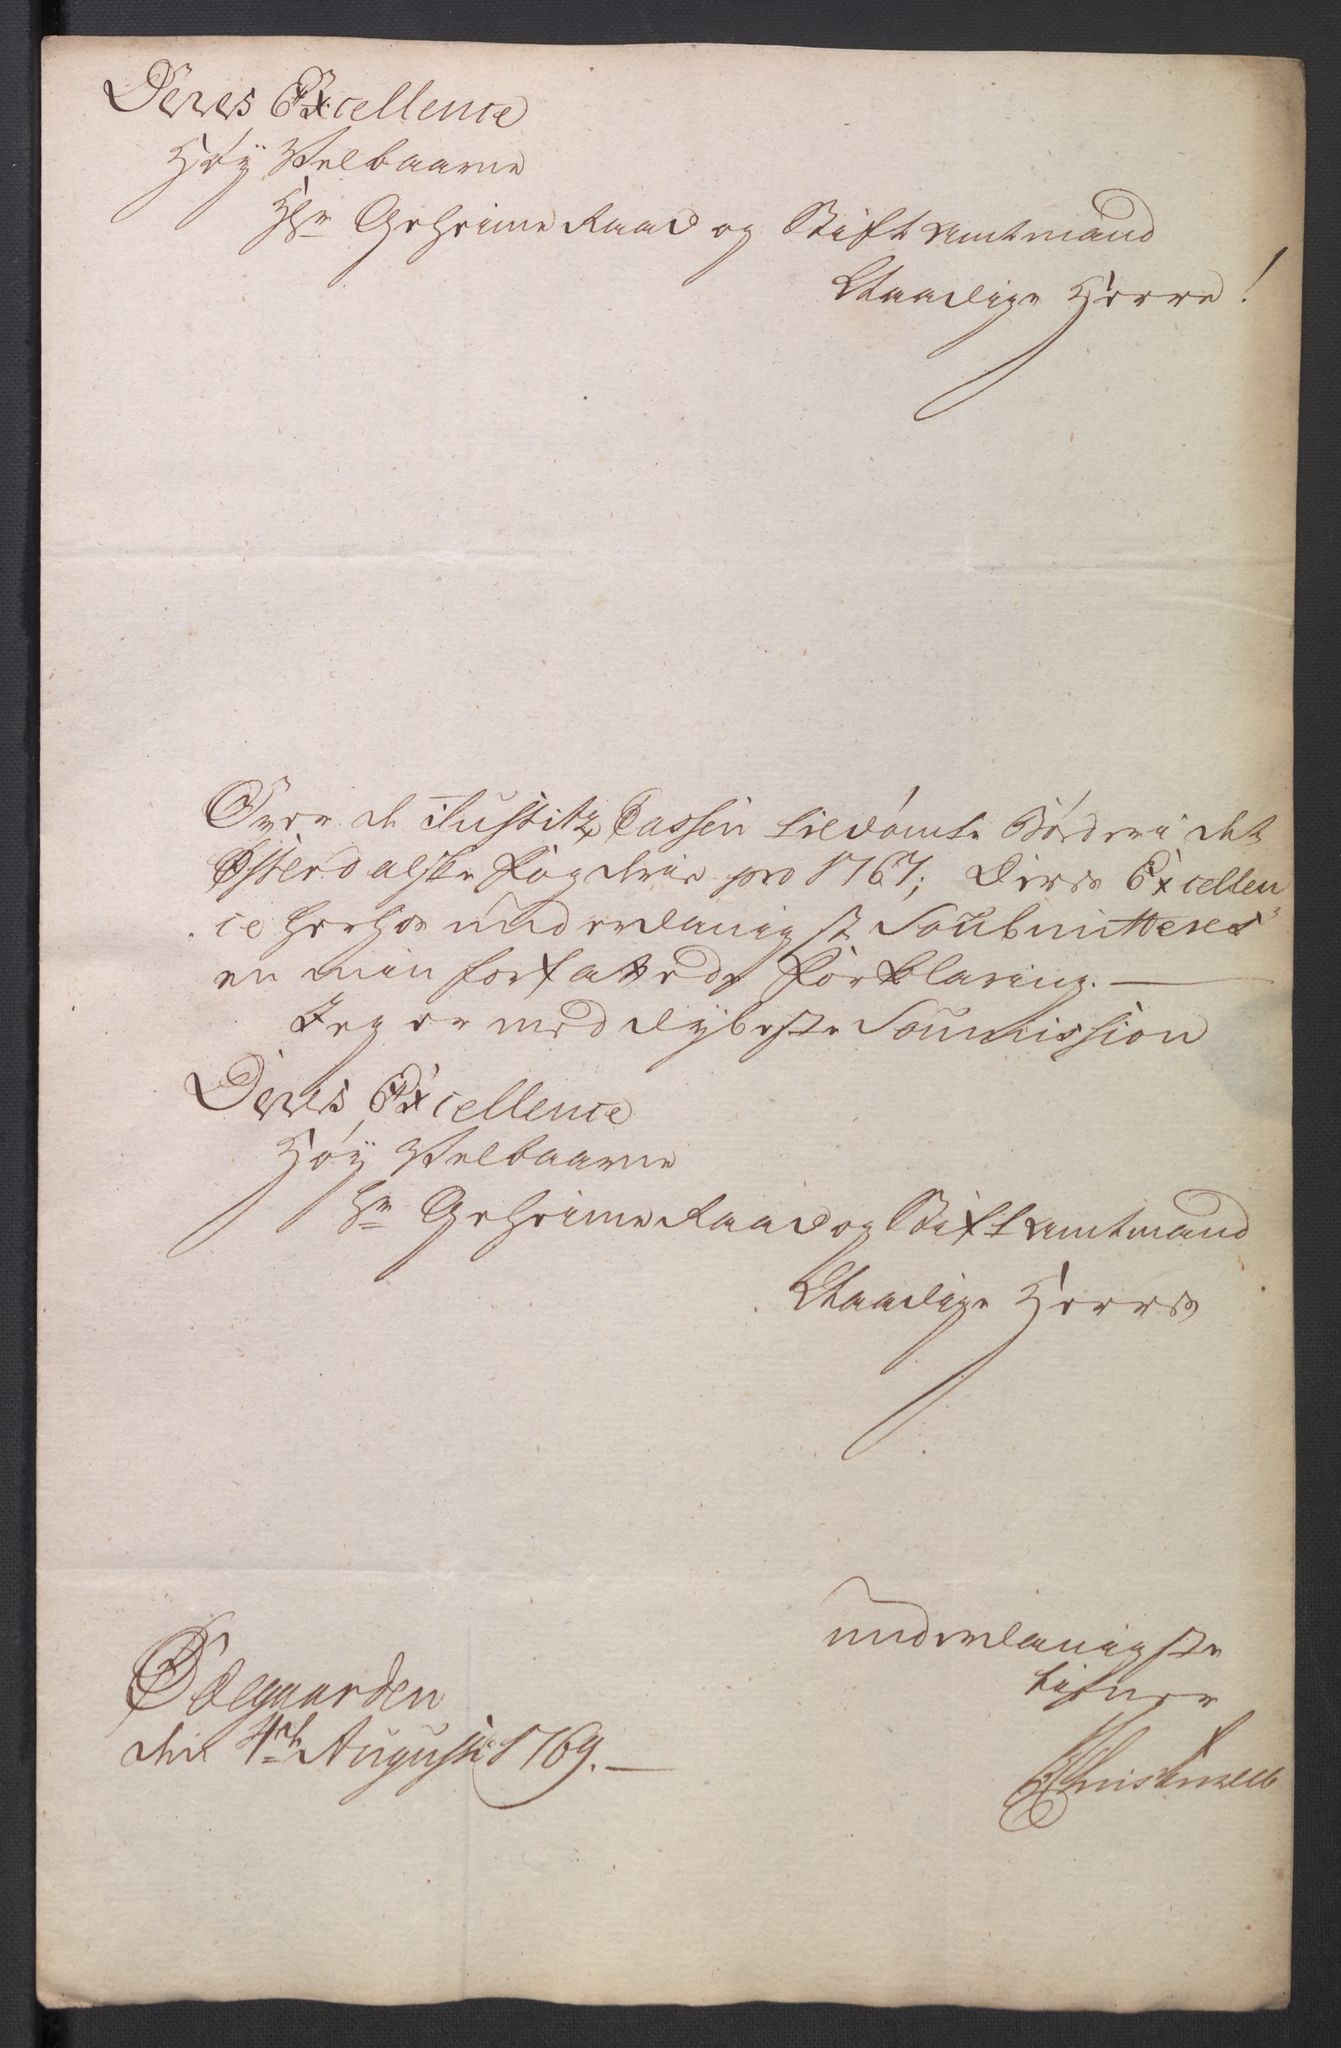 Deres Excellence
Høÿ Velbaarne
Hr Geheime Raad og Stiftamtmand
Naadige Herre!
Over de Justitz Cassen tildømte Bøder i det
Østerdalske Fogderie pro 1767; Deres Excellen
ce herhos underdanigst Soubmitteres
en min forfattede Forklaring. —
Jeg er med dybeste Soumission
Deres Excellence
Høÿ Velbaarne
Hr Geheime Raad og Stiftamtmand
Naadige Herres
underdanigste
tienner
Ødegaarden
den 4de Augusti 1769. —